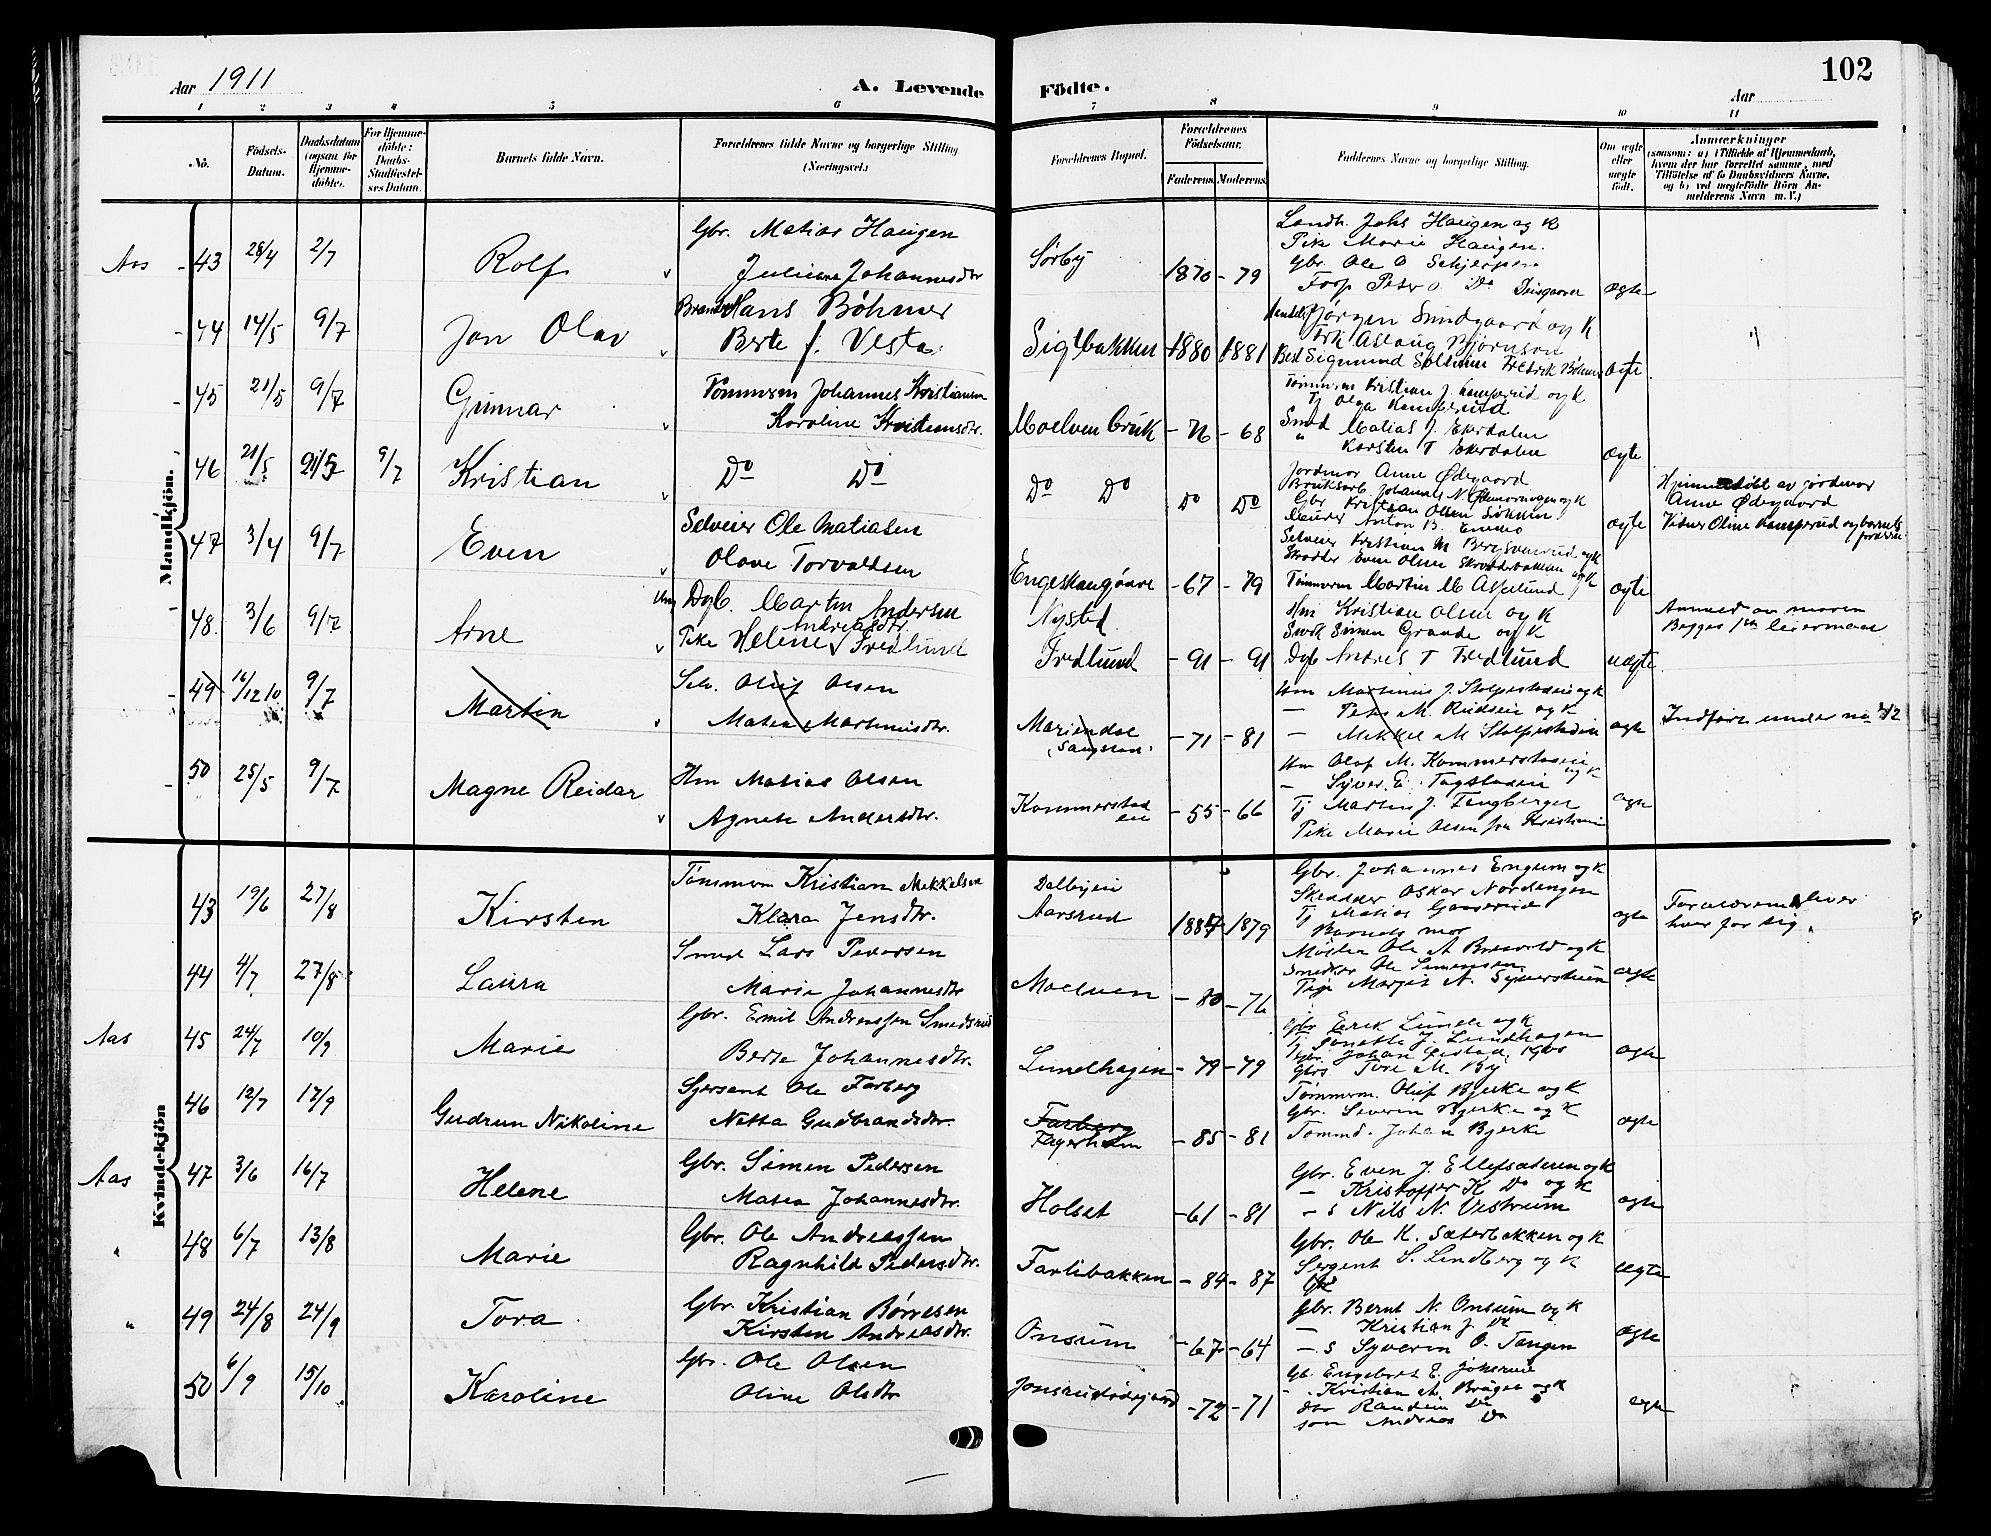 102
Aar 1911
A. Levende Födte.
Aar
1 2 3 4 5 6 7 8 9 10 11
No.
Födsels-Datum.
Daabsdatum (ogsaa for Hjemme-döbte).
For Hjemme-döbte: Daabs-Stadfæstel-ses Datum.
Barnets fulde Navn.
Forældrenes fulde Navne og borgerlige Stilling (Næringsvei.)
Forældrenes Bopæl.
Forældrenes Födselsaar.
Faderens. Moderens.
Faddernes Navne og borgerlige Stilling.
Om ægte eller uægte födt.
Anmærkninger
(saasom: a) i Tilfælde af Hjemmedaab, hvem der har forrettet samme, med Tilföielse af to Daabsvidners Navne, og b) ved uægtefödte Börn An-melderens Navn m. V.)
Mandkjön.
Aas 43 28/4 2/7 Rolf
Gbr. Matias Haugen
Juliane Johannesdtr
Sørby 1870 - 79
Landh. Johs Haugen og k
Pike Marie Haugen.
Gbr. Ole O Schjerpen
ægte
44 14/5 9/7 Jon Olav
Hans Böhmer
Berte f. Vesta
Sigtbakken 1880 1881
Jørgen Sundgaard og k
Frk Aslaug Bjørnson
Best Sigmund Fredrik Böhmer
ægte
45 21/5 9/7 Gunnar
Tömmerm Johannes Kristiansen
Karoline Kristiansdtr.
Moelven bruk - 76 - 68
Tömmerm Kristian J. Kamperud og k
Tj Olga Kamperud
Smed Matias J. Ekerdalen
" Karsten T Ekerdalen
ægte
46 21/5 21/5 9/7 Kristian
Do Do
Do Do Do Do
Jordmor Anne Ødegaard
Gbr Kristian Olsen
ægte
Hjemmedøbt av jordmor
Anne Ødegaard
Vidner Oline Kamperud og barnets
47 3/4 9/7 Even
Selveier Ole Matiasen
Olave Torvaldsen
- 67 - 79
Anton B.
Selveier Kristian M Bergsverud og k
Skrædder Even Olsen Skrædderbakken og k
Tömmerm Martin M Askelund
ægte
48. 3/6 9/7 Arne
Ung Dgb. Martin Andersen
Andreasdtr
Pike Helene Fredlund
Nysted
Fredlund - 91 - 91
Hm Kristian Olsen og k
Simen Grande og k
Dgb Andres T Fredlund
uægte
Anmed av moren
Begges 1ste leiermaal
49 16/12 10 9/7 Martin
Selv. Oluf Olsen
Matea Martinusdtr.
- 71 - 81
Hm Martinius J. Stolpestadeie og k
- Peter M. Rudseie og k
- Mikkel M Stolpestadeie
ægte
Indført under no 42
50 25/5 9/7 Magne Reidar
Hm Matias Olsen
Agnete Andersdtr.
Kommerstad
eie - 55 - 66
Hm Olaf M. Kommerstadeie
- Syver E.
Tj Martin J. Tengberger
Pike Marie Olsen fra Kristiania
ægte
Kvindekjön
43 19/6 27/8 Kirsten
Tömmerm Kristian Mikkelsen
Klara Jensdtr.
Dalbyeie
Aarsrud 1884 - 1879
Gbr. Johannes Engum og k
Skrædder Oskar Nordengen
Tj Matias
Barnets mor
ægte
Forældrene lever
hver for sig.
44 4/7 27/8 Laura
Smed Lars Pedersen
Marie Johannesdtr
Moelven - 80 - 76
Ole A
Snedker Ole Simensen
Pige Margit N. Syverstuen
ægte
Aas 45 24/7 10/9 Marie
Gbr. Emil Andreassen Smedsrud
Berte Johannesdtr.
Lundhagen - 79 - 79
Gbr Erik Lunde og k
Tj Jonette J. Lundhagen
Gbr. Johan
Gbrs Tore M. By
ægte
46 12/7 17/9 Gudrun Nikoline
Sersant Ole Farberg
Netta Gudbrandsdtr.
Farberg
Fagerholm - 85 - 81
Tömmerm. Oluf Bjerke og k
Gbr. Severin Bjerke og k
Tömmd. Johan Bjerke
ægte
Aas 47 3/6 16/7 Helene
Gbr. Simen Pedersen
Matea Johannesdtr.
Holset - 61 - 81
Gbr. Even J. Ellefsæteren og k
- Kristoffer K Do og k
- s Nils N.
ægte
" 48 6/7 13/8 Marie
Gbr. Ole Andreassen
Ragnhild Pedersdtr.
Farlibakken - 84 - 87
Gbr. Ole K. Sæterbakken og k
Sergent S. Lindberg og k
ægte
" 49 24/8 24/9 Tora
Gbr. Kristian Børresen
Kirsten Andreasdtr.
Onsum - 67 - 64
Gbr. Bernt N. Onsum og k
- Kristian J. Do
- s Syverin O. Tangen
ægte
50 6/9 15/10 Karoline
Gbr. Ole Olsen
Oline Olsdtr
Jonsrudødegaard - 72 - 71
Gb. Engebret E. Jonsrud
" Kristian M. og k
dtr Randine Do
søn Andreas Do
ægte